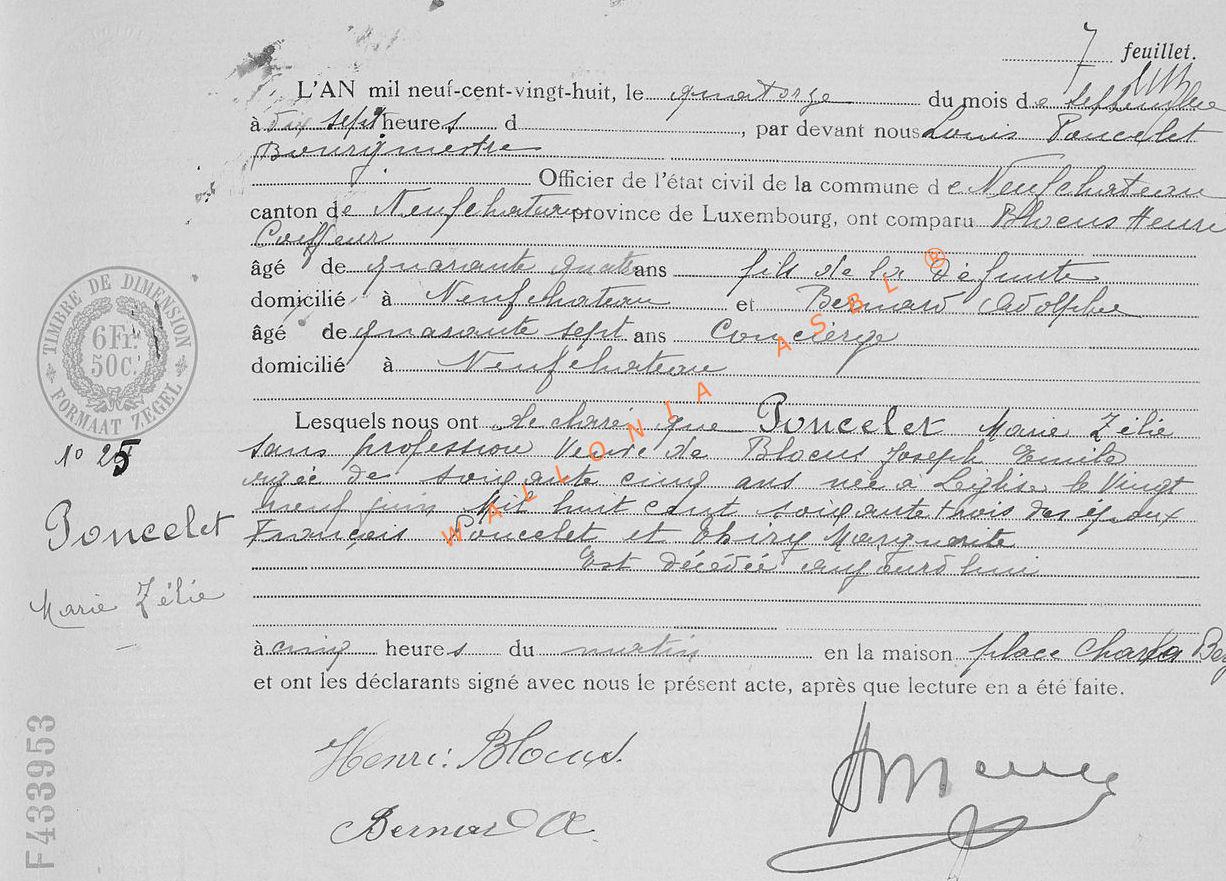 7 feuillet.
L'AN mil neuf-cent-vingt-huit, le quatorze du mois de Septembre
à dix sept heures d , par devant nous Louis Poncelet
Bourgmestre
Officier de l'état civil de la commune de Neufchateau
canton de Neufchateau province de Luxembourg, ont comparu Blocus Henri
Coiffeur
âgé de quarante quatre ans fils de la défunte
domicilié à Neufchateau et Bernard Adolphe
âgé de quarante sept ans Concierge
domicilié à Neufchateau
Lesquels nous ont déclaré que Poncelet Marie Zélie
sans profession Veuve de Blocus Joseph Emile
agée de soixante cinq ans née à Léglise le Vingt
neuf juin Mil huit cent soixante trois des époux
François Poncelet et Thiry Marguerite
Est décédée aujourd'hui
à cinq heures du matin en la maison place Charles
et ont les déclarants signé avec nous le présent acte, après que lecture en a été faite.
Henri Blocus.
Bernard A
TIMBRE DE DIMENSION
6 Fr.
50 C.
FORMAAT ZEGEL
No 25
Poncelet
Marie Zélie
F433953
WALLONIA ASBL ®